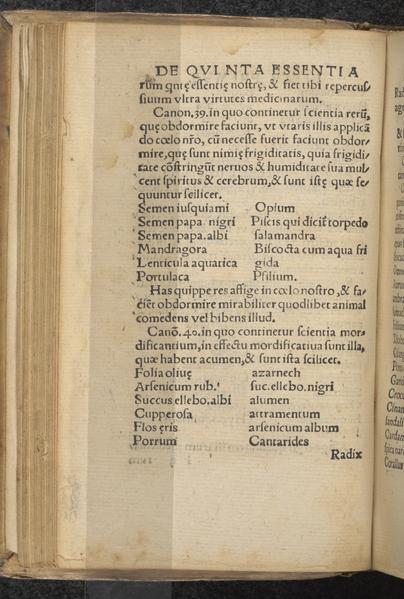 DE QVINTA ESSENTIA
rum qntę essentię nostrę, & fiet tibi repercus-
siuum vltra virtutes medicinarum.
Canon.39.in quo continetur scientia rerū,
quę obdormire faciunt, vt vtaris illis applicā
do cœlo nr̄o, cū necesse fuerit faciunt obdor-
mire, quę sunt nimię frigiditatis, quia frigidi-
tate cōstringūt neruos & humiditate sua mul
cent spiritus & cerebrum, & sunt istę quæ se-
quuntur scilicet.
Semen iusquiami Opium
Semen papa. nigri Piscis qui dicit͛ torpedo
Semen papa. albi salamandra
Mandragora Biscocta cum aqua fri
Lenticula aquatica gida
Portulaca Psilium.
Has quippe res affige in cœlo nostro, & fa-
ciēt obdormire mirabiliter quodlibet animal
comedens vel bibens illud.
Canō. 40. in quo continetur scientia mor-
dificantium, in effectu mordificatiua sunt illa,
quæ habent acumen, & sunt ista scilicet.
Folia oliuę azarnech
Arsenicum rub. suc. ellebo. nigri
Succus ellebo. albi alumen
Cupperosa attramentum
Flos ęris arsenicum album
Porrum Cantarides
Radix